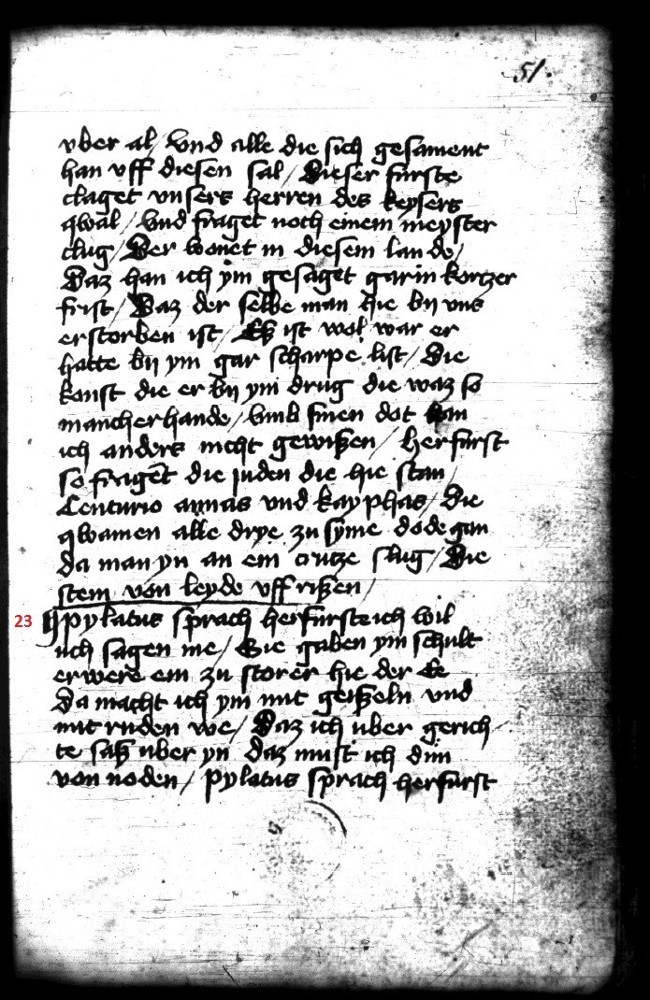 51.
vber al / Vnd alle die sich gesament
han vff diesen sal / Dieser furste
claget vnsers herren des keysers
qwal / Vnd fraget noch einem meyster
clug / Der wonet in diesem lande /
Daz han ich ym gesaget gar in kortzer
frist / Daz der selbe man hie bij vns
erstorben ist / Eß ist wol war er
hatte bij ym gar scharpe list / Die
konst die er bij ym drug die waz so
mancherhande / Vmb sinen dot kan
ich anders nicht gewißen / Her furst
so fraget die juden die hie stan /
Centurio annas vnd kayphas / Die
qwamen alle drye zu syme dode gan
da man yn an ein crutze slug / Die
stein von leyde vff rißen /
23 pylatus sprach her furste ich wil
uch sagen me / Sie gaben ym schult
er were ein zu storer hie der Ee
da macht ich ym mit geißeln vnd
mit ruden we / Daz ich uber gerich
te saß uber yn daz must ich dun
von noden / pylatus sprach her furst